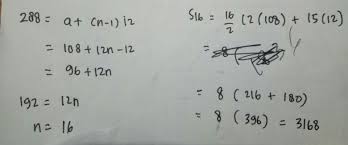 288 = a + (n-1) 12
= 108 + 12n - 12
= 96 + 12n
192 = 12n
n = 16
S16 = 16/2 (2(108) + 15(12)
=
= 8 (216 + 180)
= 8 (396) = 3168